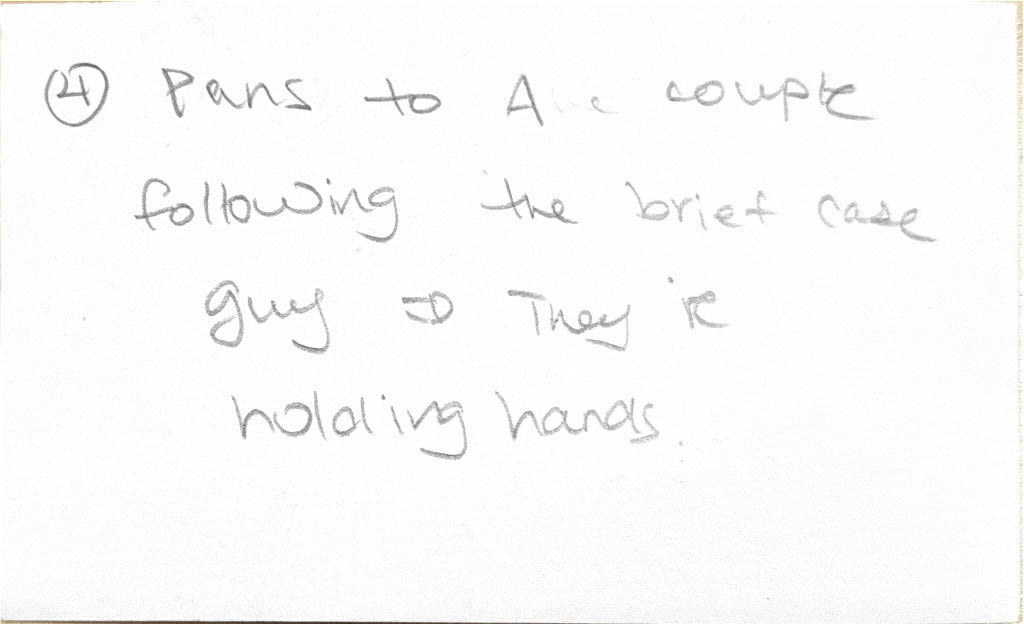 ④ Pans to A couple
following the brief case
guy ⇒ They're
holding hands.